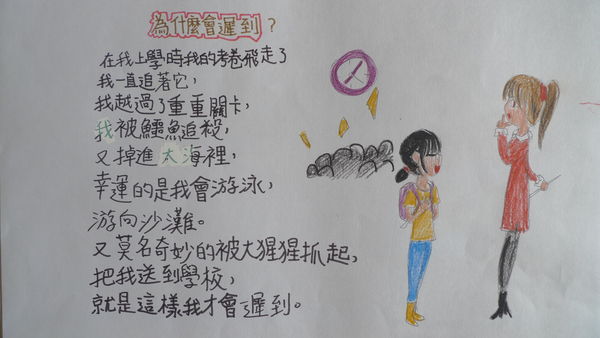 為什麼會遲到？
在我上學時我的考卷飛走了
我一直追著它，
我越過了重重關卡，
我被鱷魚追殺，
又掉進大海裡，
幸運的是我會游泳，
游向沙灘。
又莫名奇妙的被大猩猩抓起，
把我送到學校，
就是這樣我才會遲到。